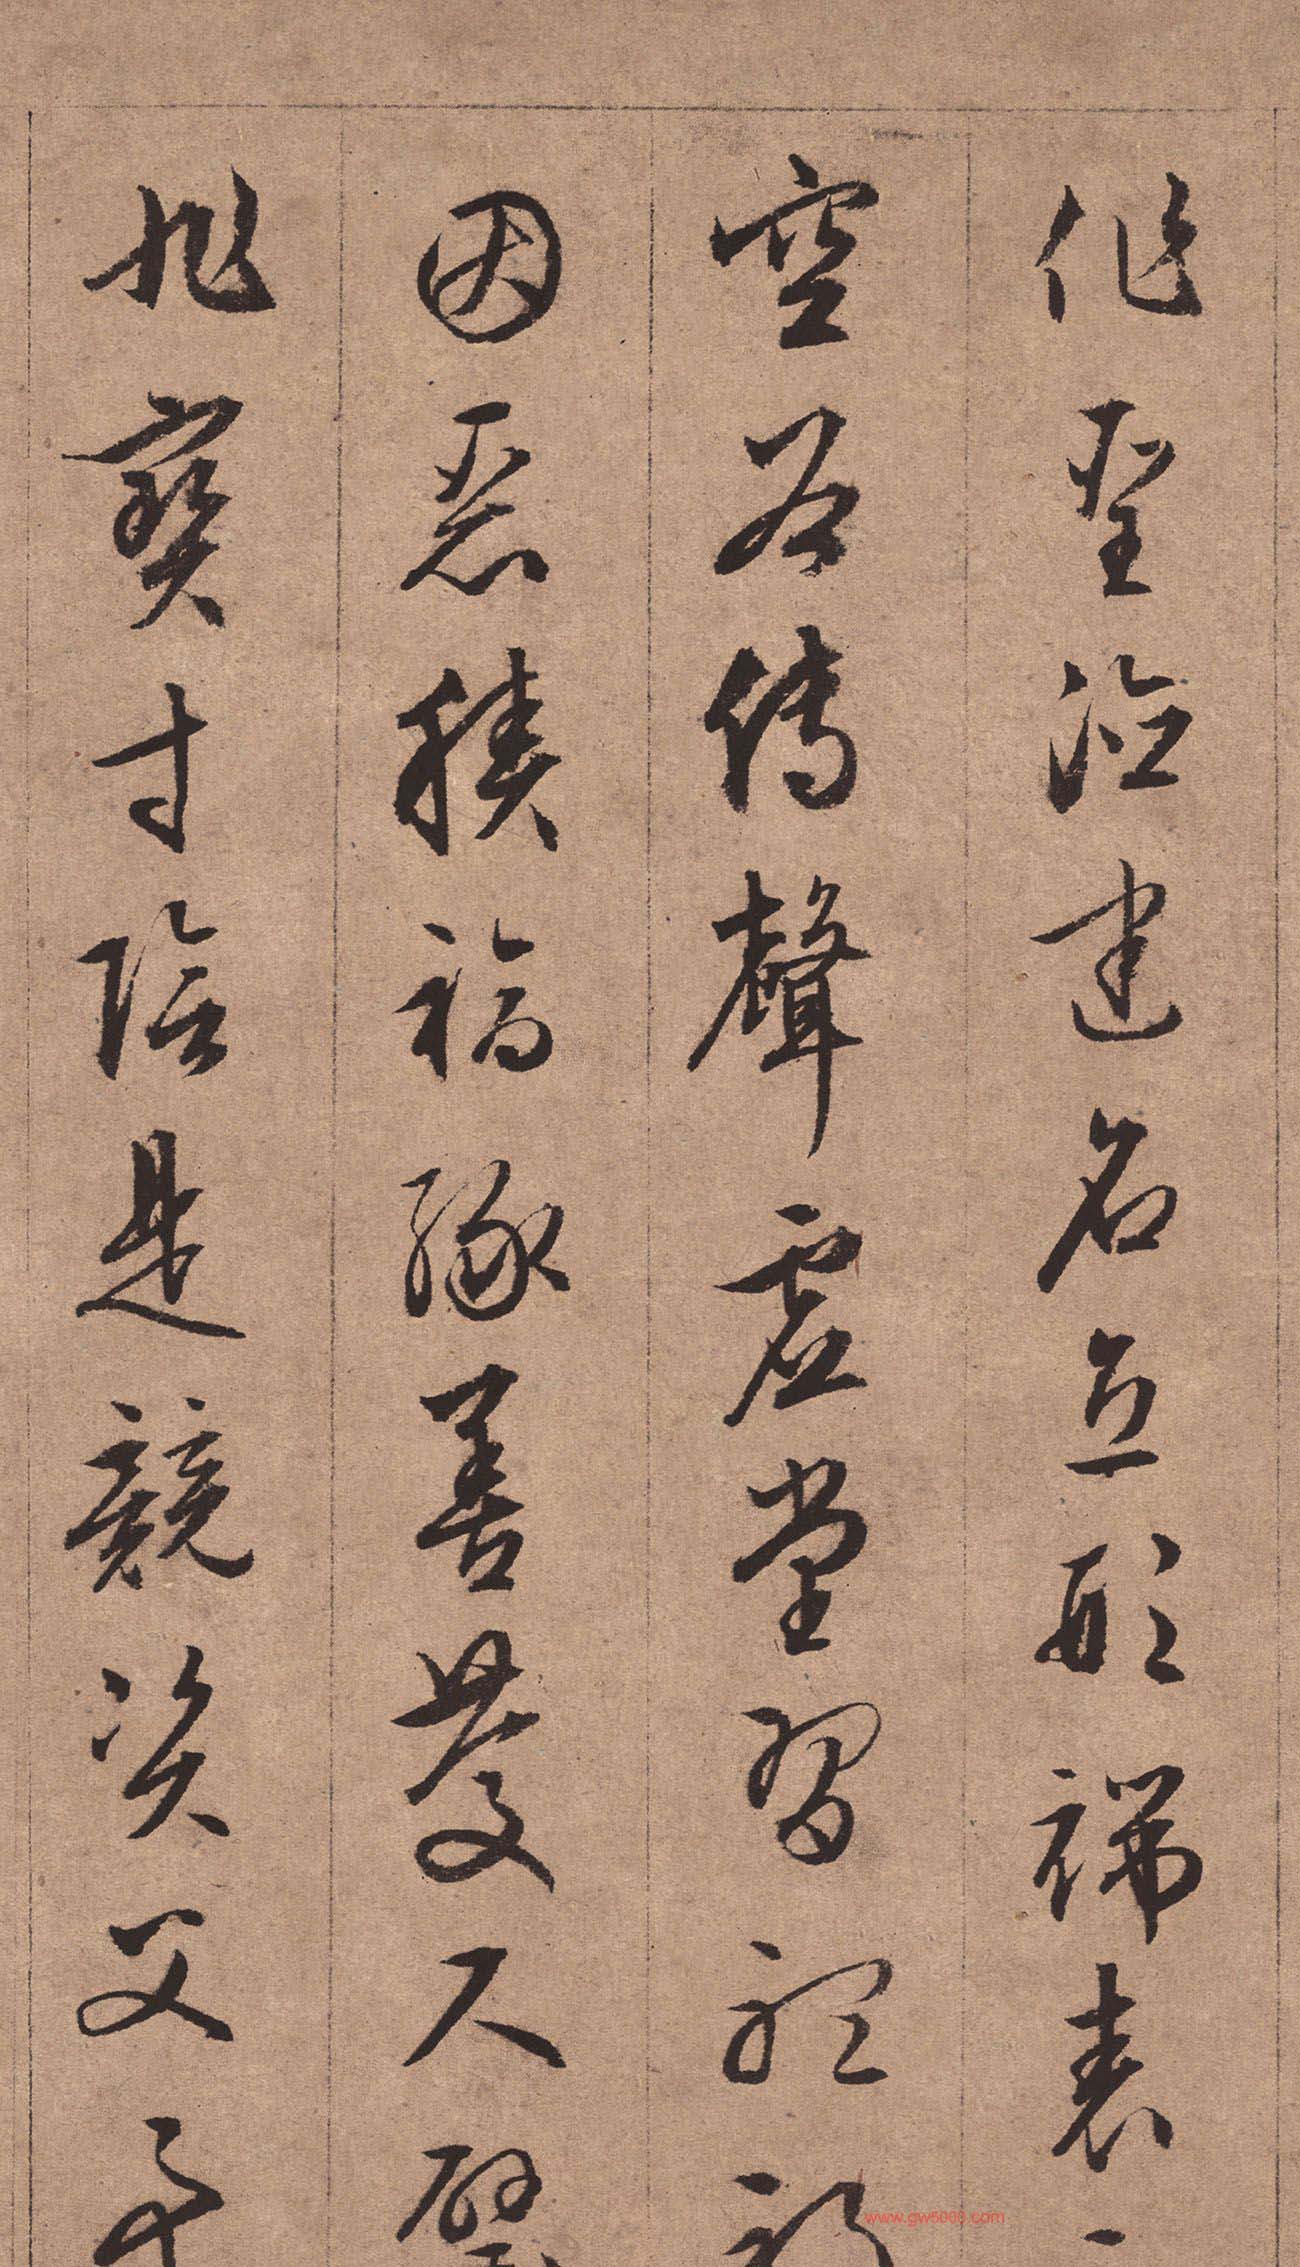 作聖德建名立形端表
空谷傳聲虛堂習聽
因惡積福緣善慶尺璧
非寶寸陰是競資父事
www.gw5000.com